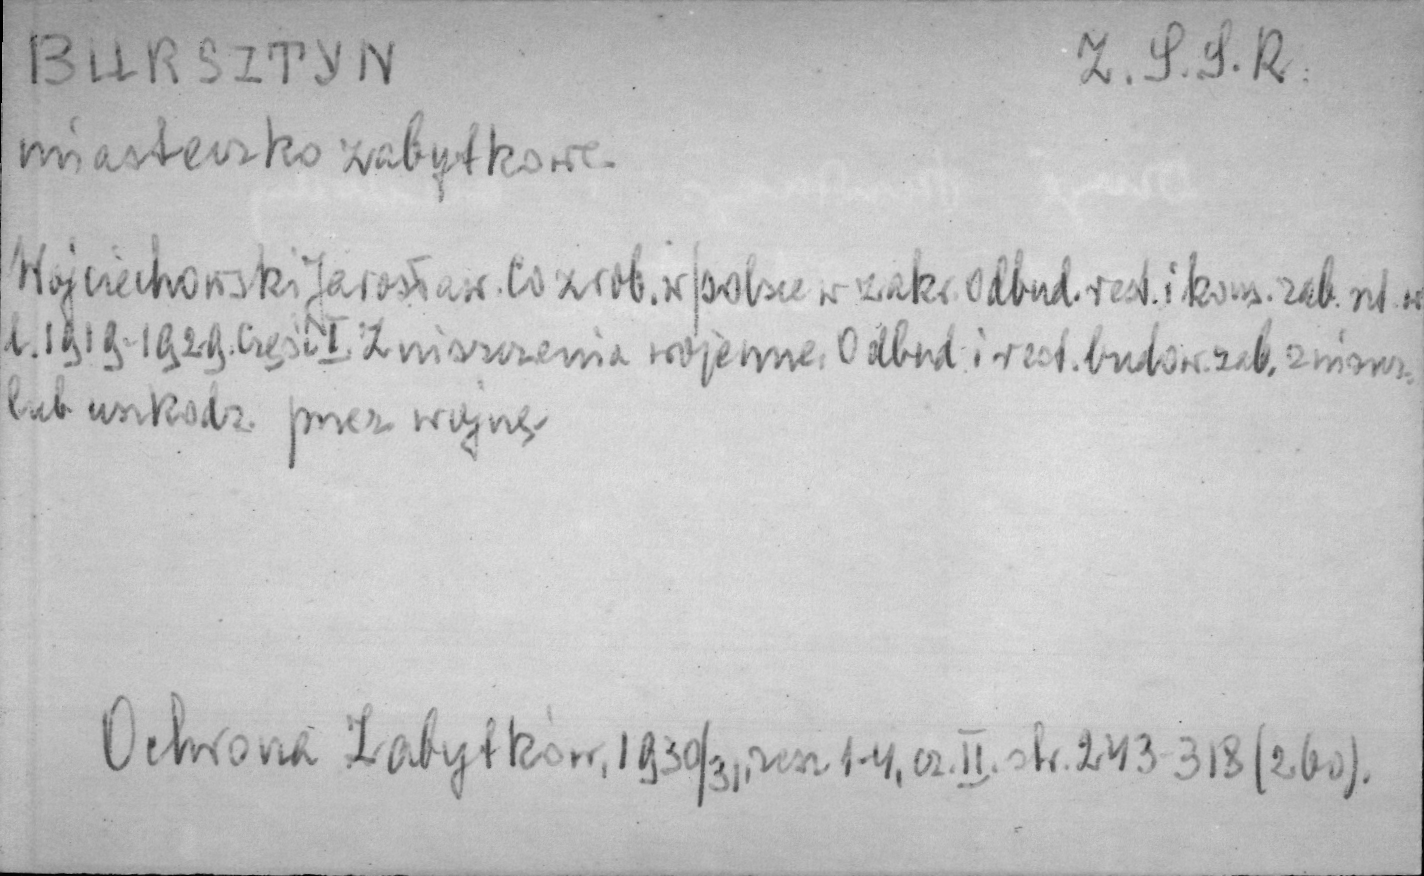 BURSZTYN Z.S.S.R.
miasteczko zabytkowe.
Wojciechowski Jarosław. Co zrob. w polsce w zakr. odbud. rest. i kons. zab. szt. w
l. 1919-1929. Część I. Zniszczenia wojenne. Odbud. i rest. budow. zab. zniszcz.
lub uszkodz. przez wojnę
Ochrona Zabytków, 1930/31, zesz 1-4, cz. II. str. 243-318 (260).